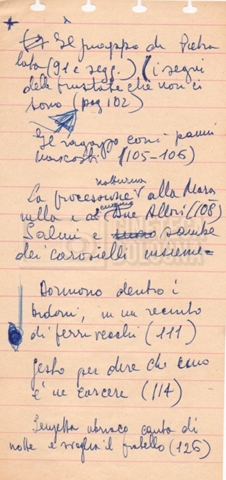 Il gruppo di Pietra
lata (91 e segg.) (i segni
delle frustate che non ci
sono (pag 102)
Il ragazzo con i panni
nascosti. (105-106)
notturna
La processione alla Mara
nella e al cinema Due Allori (108)
Salmi e sambe
dei caroselli insieme=
Dormono dentro i
bidoni, in un recinto
di ferri vecchi (111)
gesto per dire che sono
e' ne carcere (114)
ubriaco canta di
notte e sveglia il fratello (126)